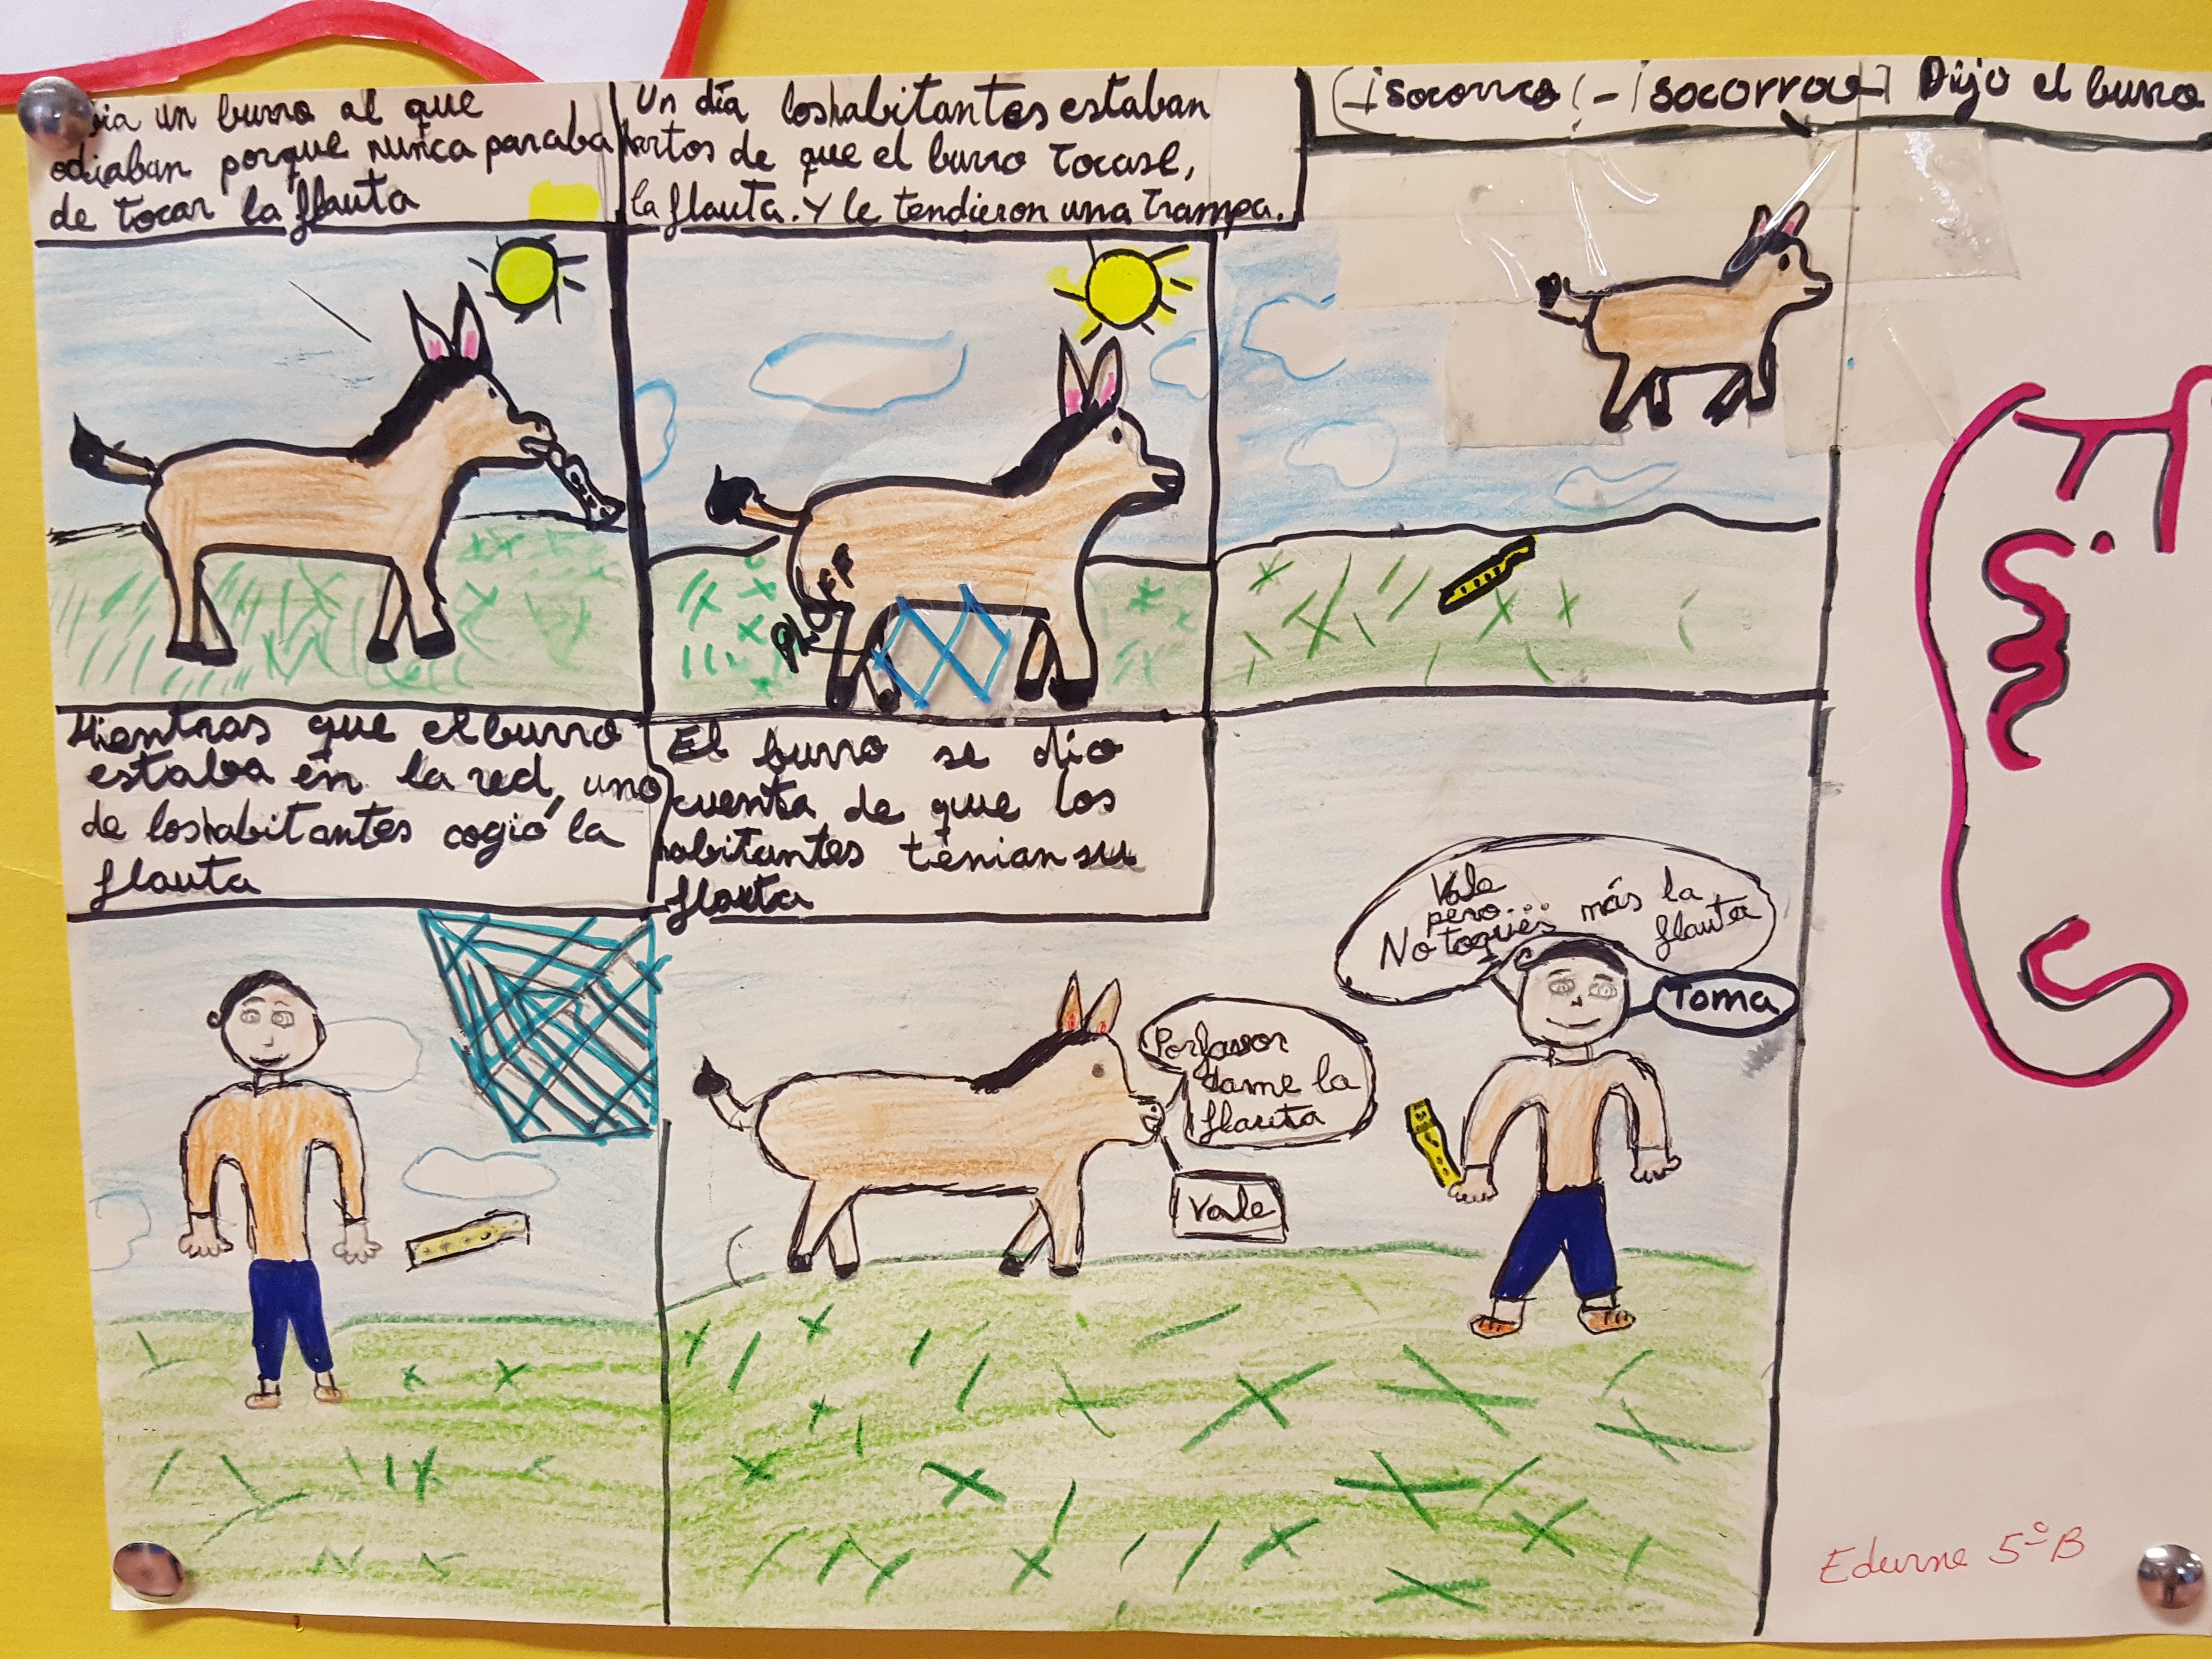 un burro al que
odiaban porque nunca paraba
de tocar la flauta
Un día los habitantes estaban
hartos de que el burro Tocase,
la flauta. Y le tendieron una Trampa.
(-¡Socorro!-¡socorroo-] Dijo el burro
PLOFF
Mientras que el burro
estaba en la red, uno
de los habitantes cogió la
flauta
El burro se dio
cuenta de que los
habitantes tenian su
flauta
Porfavor
dame la
flauta
Vale
Vale
pero...
No toques más la
flauta
Toma
Edurne 5º B